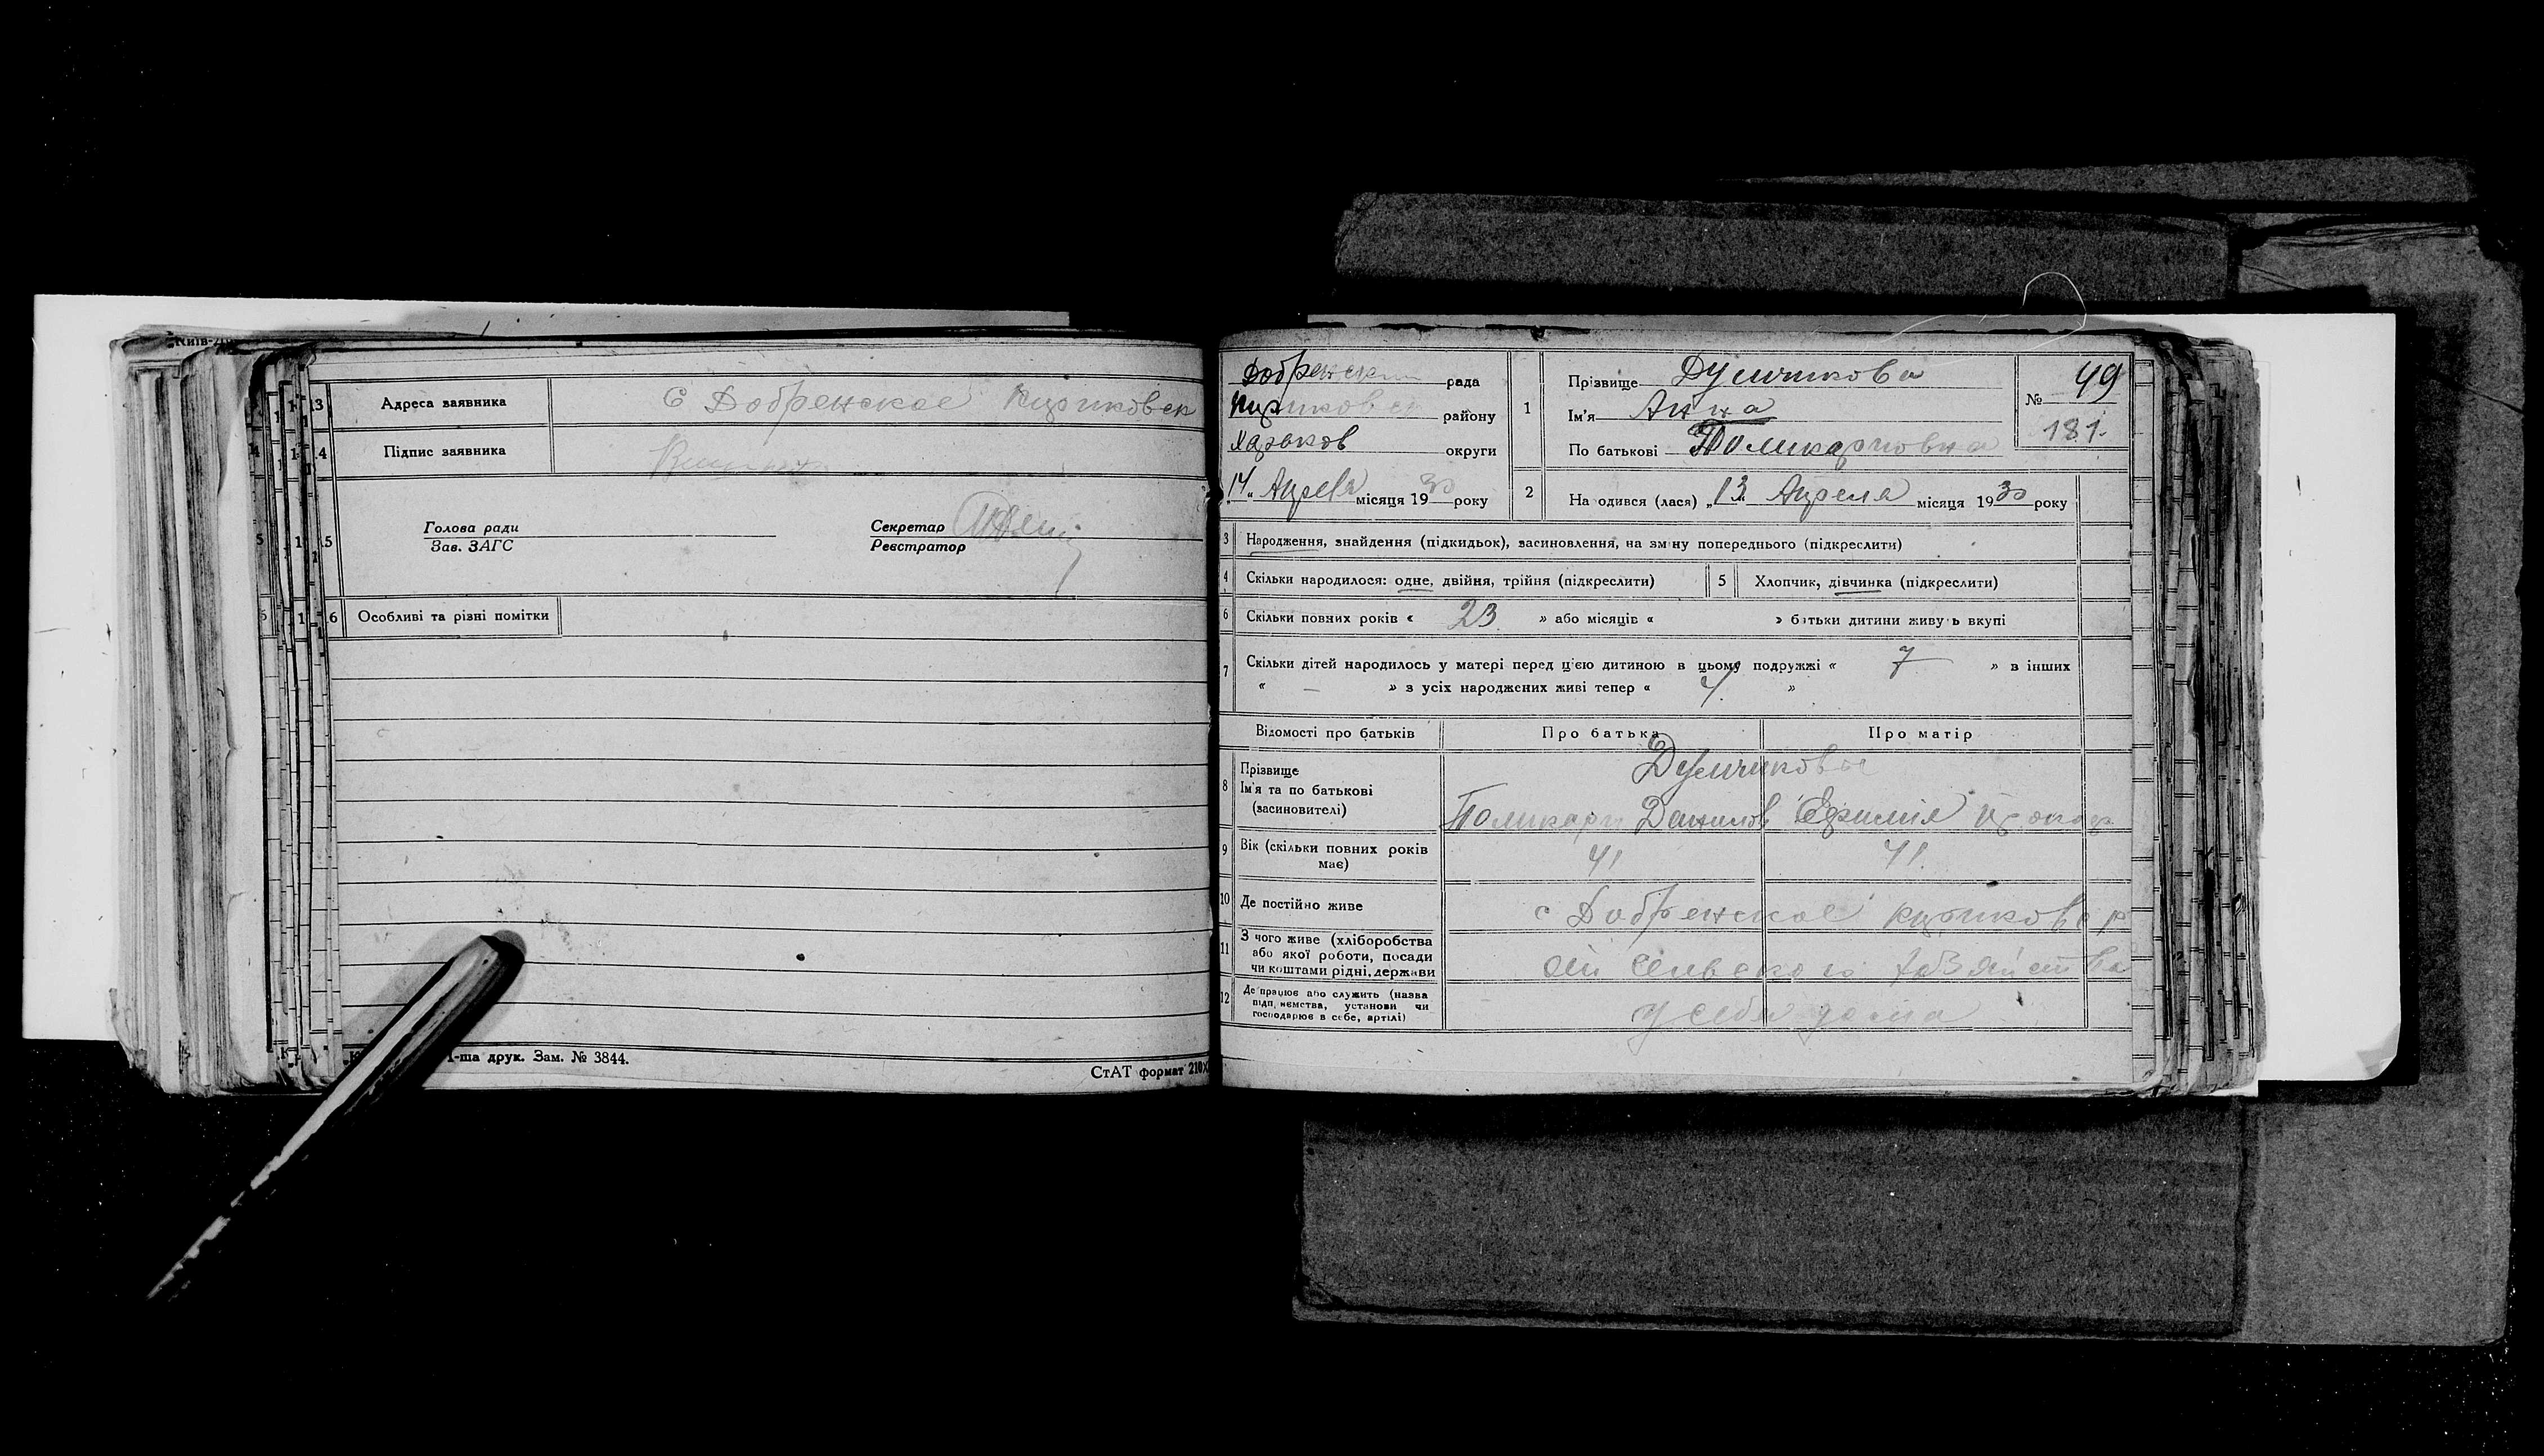 Адреса заявника С Добренское
Підпис заявника
Голова ради
Зав. ЗАГС
Секретар
Реєстратор
Особливі та різні помітки
1-ша друк. Зам. № 3844.
СтАТ формат 210
Добренск рада
району
Харьков округи
14 Апреля місяця 1930 року
1
Прізвище
Ім'я Анна
По батькові Поликарповна
№ 49
181.
2
На одився (лася) „13 Апреля місяця 1930 року
3 Народження, знайдення (підкидьок), засиновлення, на зміну попереднього (підкреслити)
4 Скільки народилося: одне, двійня, трійня (підкреслити)
5 Хлопчик, дівчинка (підкреслити)
6 Скільки повних років « 23 » або місяців « » батьки дитини живуть вкупі
7 Скільки дітей народилось у матері перед цією дитиною в цьому подружжі « 7 » в інших
« – » з усіх народжених живі тепер « 4 »
Відомості про батьків Про батька Про матір
8 Прізвище
Ім'я та по батькові
(засиновителі)
Поликарп Данилов Ефимия
9 Вік (скільки повних років
має)
41 41.
10 Де постійно живе с Добренское
11 З чого живе (хліборобства
або якої роботи, посади
чи коштами рідні, держави
От сельского хозяйства
12 Де працює або служить (назва
підприємства, установи чи
господарює в себе, артілі)
у себя дома